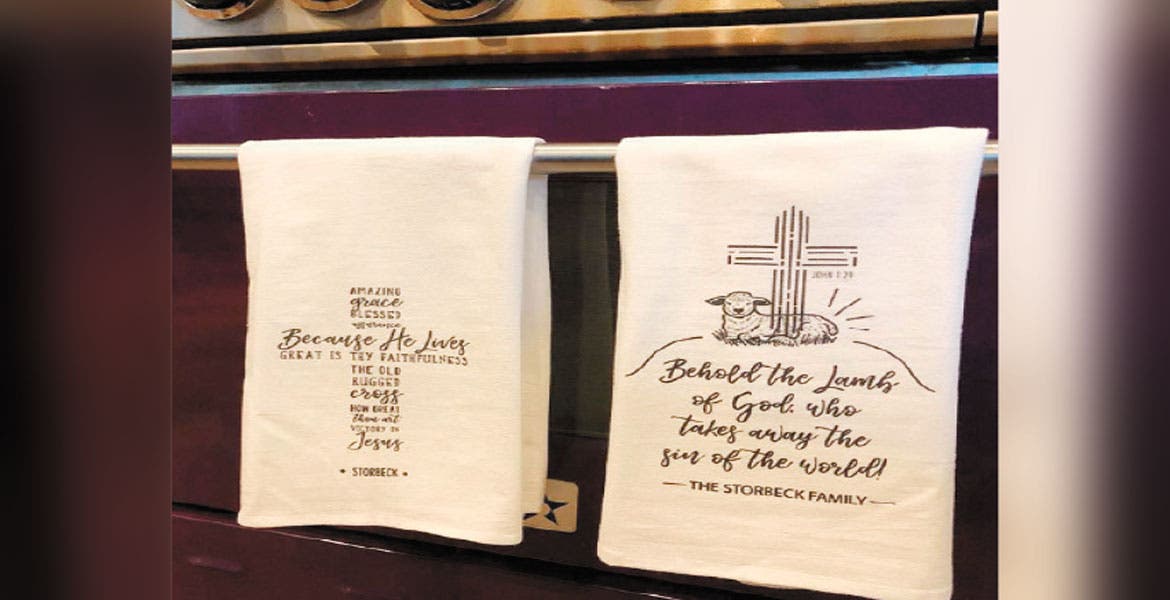 AMAZING
grace
BLESSED
assurance
Because He Lives
GREAT IS THY FAITHFULNESS
THE OLD
RUGGED
cross
HOW GREAT
thou art
VICTORY IN
Jesus
• STORBECK •
JOHN 1:29
Behold the Lamb
of God, who
takes away the
sin of the world!
THE STORBECK FAMILY